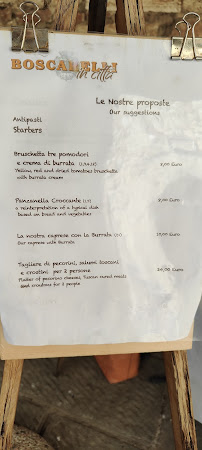 BOSCARELLI
in città
Le Nostre proposte
Our suggestions
Antipasti
Starters
Bruschetta tre pomodori
e crema di burrata
Yellow, red and dried tomatoes bruschetta
with burrata cream
Panzanella Croccante
a reinterpretation of a typical dish
based on bread and vegetables
La nostra caprese con la Burrata
Our caprese with Burrata
Tagliere di pecorini, salumi toscani
e crostini per 2 persone
Platter of pecorino cheeses, Tuscan cured meats
and croutons for 2 people